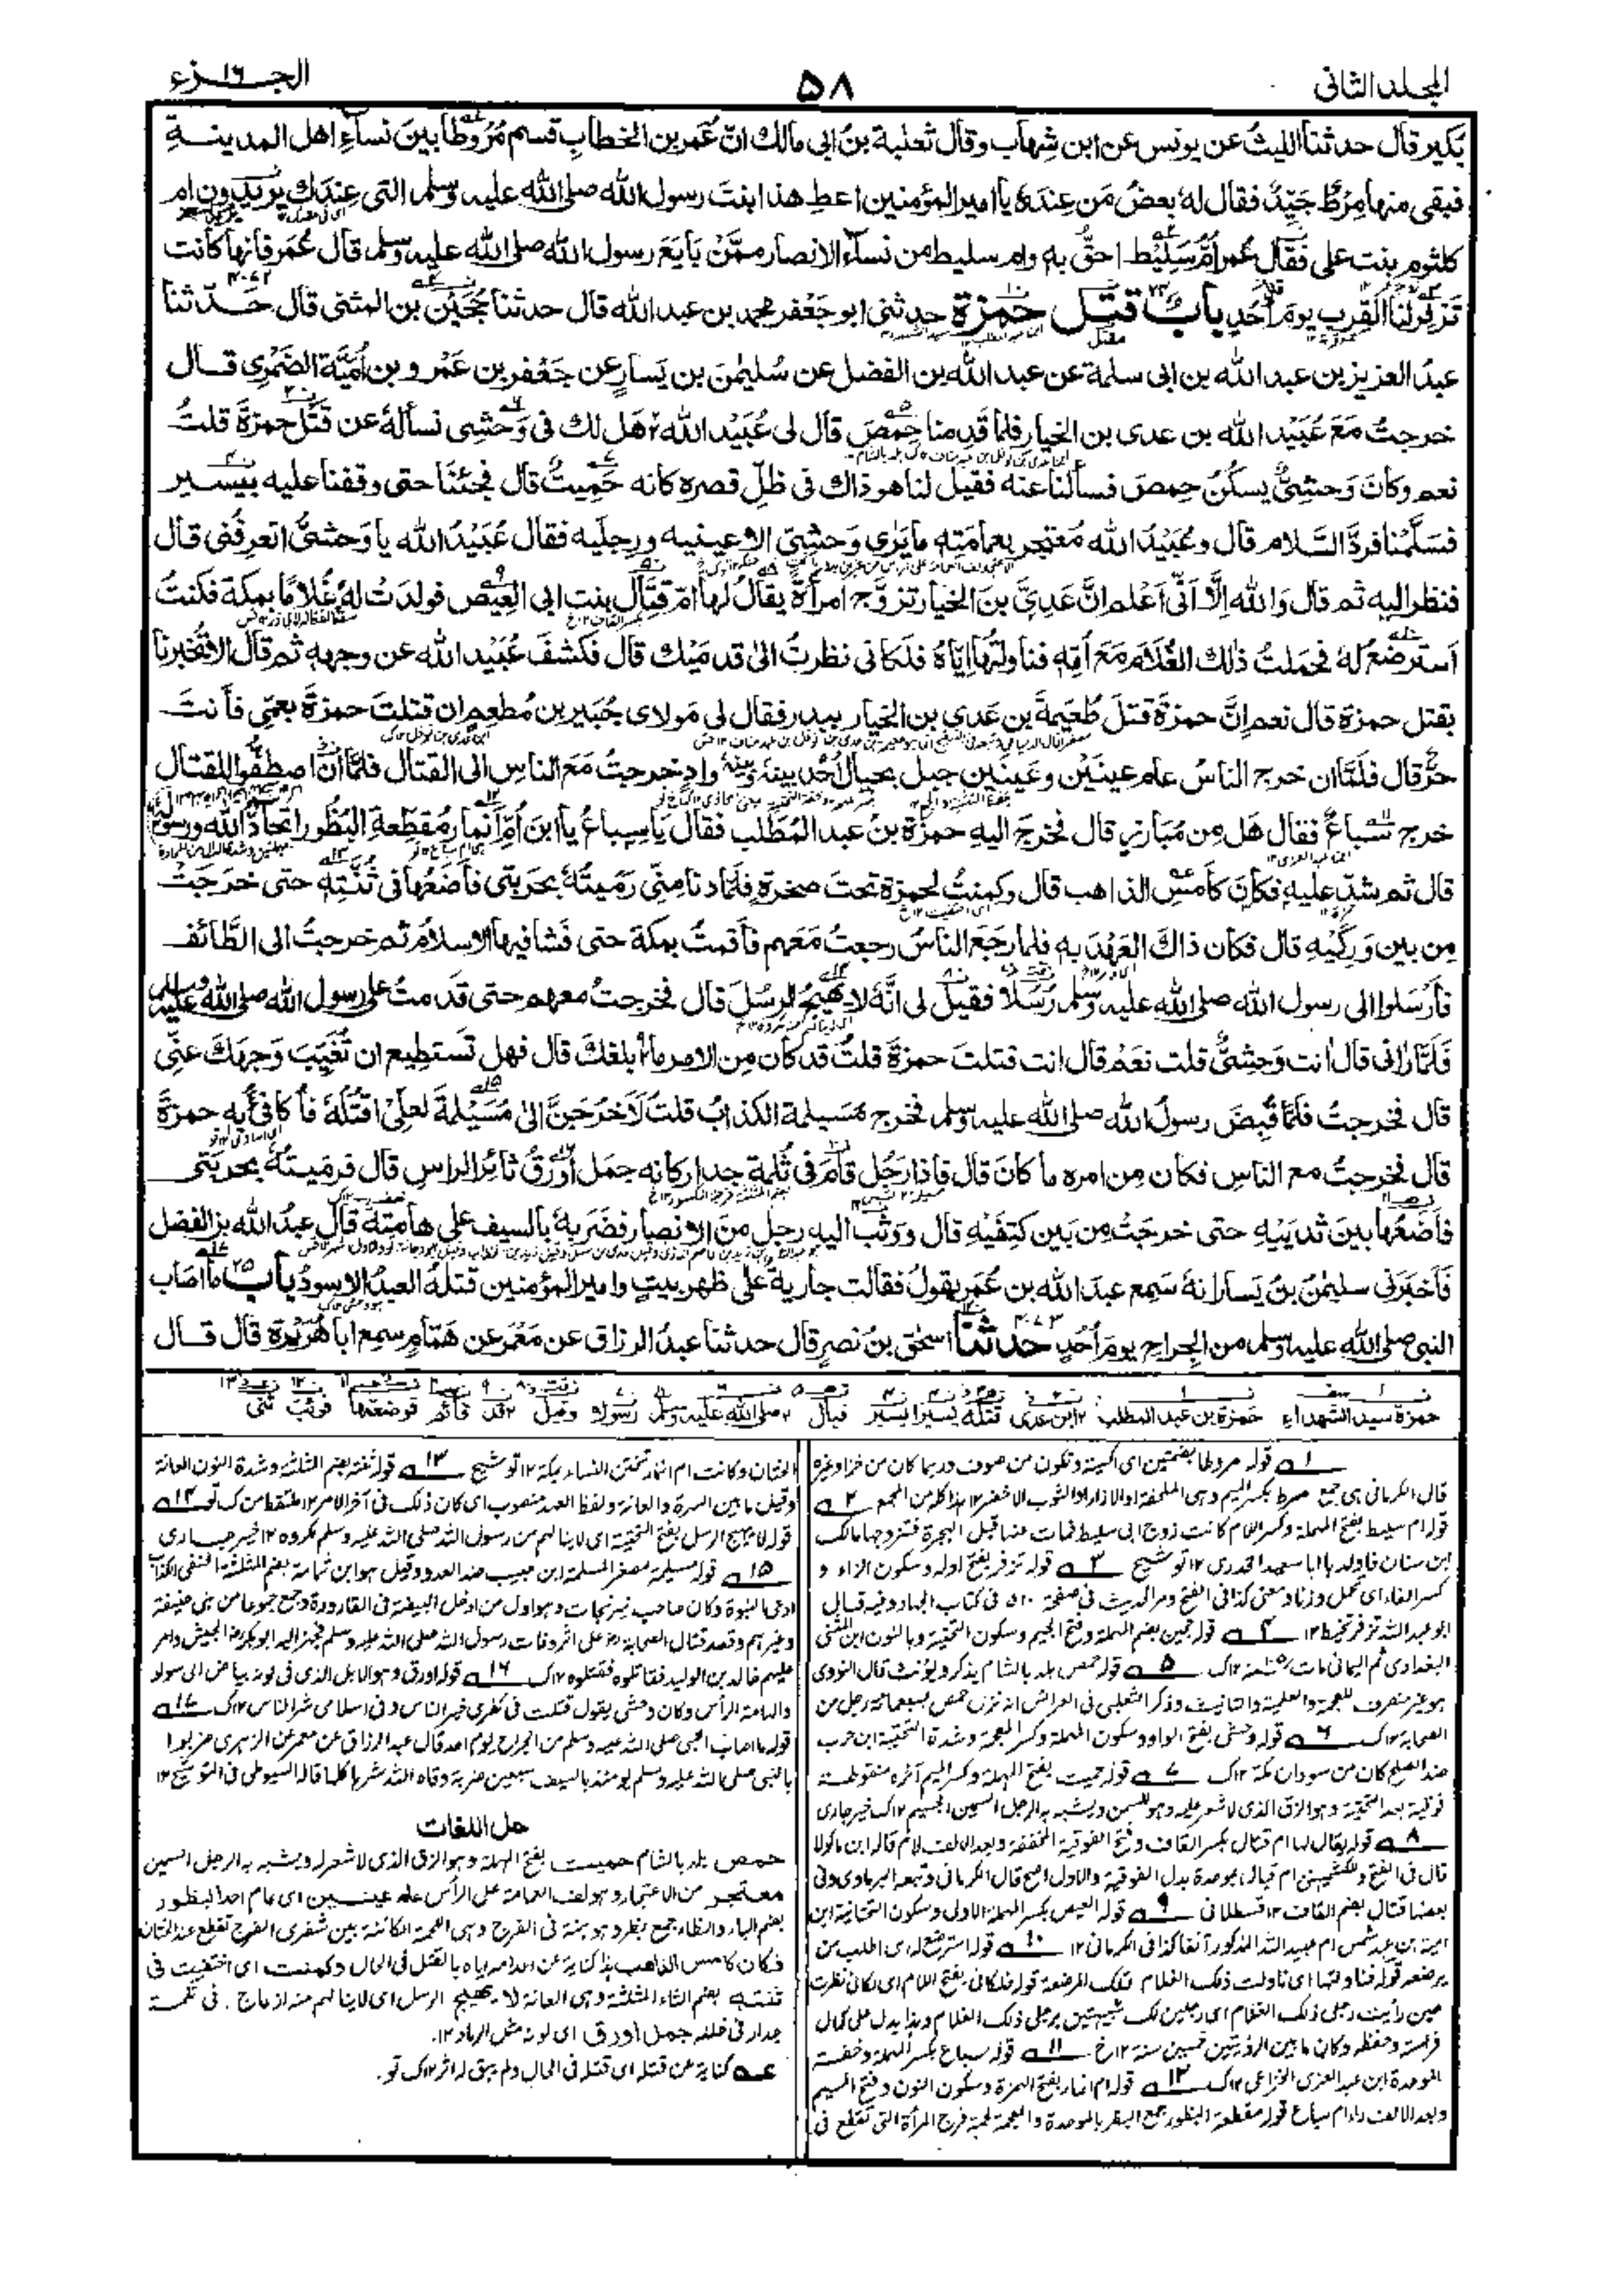 المجلد الثانی
۵۸
الجـ۱۶ـزء
بُکیر قال حدثنا اللیث عن یونس عن ابن شهاب وقال ثعلبة بن ابی مالك انّ عُمَر بن الخطابِ قسم مُرُوطا بینَ نساءِ اهل المدینة
فبقی منها مِرْطٌ جَیِّدٌ فقال لهٗ بعضُ مَن عِندَهٗ یا امیر المؤمنین اعطِ هذا ابنتَ رسول الله صلی الله علیه وسلم التی عِندَك یُریدون ام
کلثوم بنت علی فقال عُمر اُمّ سَلِیْط احقُّ به وام سلیط من نساء الانصار ممَّنْ بایَعَ رسول الله صلی الله علیه وسلم قال عُمَر فانها کانت
تَزفِرُ لنا القِرَب یومَ اُحُدٍ باب قتل حمزة حدثنی ابو جَعْفر محمد بن عبد الله قال حدثنا حُجَیْن بن المثنی قال حدّثنا
عبدُ العزیز بن عبد الله بن ابی سلمة عن عبد الله بن الفضل عن سُلیمٰنَ بن یَسارٍ عن جَعْفر بن عَمْرو بن اُمَیَّة الضَمْرِی قال
خرجتُ مَعَ عُبَیْد الله بن عدی بن الخیار فلما قَدِمنا حِمصَ قال لی عُبَیْد الله هَل لك فی وَحشی نسألهٗ عن قتلِ حمزةَ قلتُ
نعم وکانَ وَحشِیٌّ یسکُنُ حِمصَ فسألنا عنه فقیل لنا هو ذاك فی ظلِّ قصره کانه حَمِیتٌ قال فجئنا حتی وقفنا علیه بیَسیر
فسَلَّمْنا فردَّ السَّلام قال وعُبَیْدُ الله مُعتجِر بعمامَتِه ما یَرٰی وَحشیّ الا عینیه ورِجلَیه فقال عُبَیْدُ الله یا وَحشیُّ اتعرِفُنی قال
فنظر الیه ثم قال وَالله اِلَّا اَنّی اَعْلم انَّ عَدِیَّ بنَ الخیار تزوَّج امرأةً یقالُ لها امّ قِتَال بنت ابی العِیْص فولدَتْ لهٗ غُلاماً بمکة فکنتُ
اَسترضعُ لهٗ فحملتُ ذٰلك الغُلامَ مَعَ اُمِّه فناولتُها اِیّاهُ فلَکانی نظرتُ الیٰ قدمَیْك قال فکشفَ عُبَیْد الله عن وجهِه ثم قال الا تُخبِرنا
بقتل حمزة قال نعم اِنَّ حمزةَ قتلَ طُعَیمةَ بن عَدِی بن الخیار ببدر فقال لی مَولای جُبَیر بن مُطعِم ان قتلتَ حمزةَ بعمّی فأنتَ
حُرٌّ قال فلمّا ان خرج الناسُ عام عینَیْن وعَینَین جبل بحِیال اُحُد بینهٗ وبینهٗ وادٍ خرجتُ مَعَ الناسِ الی القتال فلمّا ان اصطفّوا للقتال
خرج سباعٌ فقال هَل مِن مُبارِزٍ قال فخرجَ الیه حمزة بنُ عبد المُطَّلِب فقال یا سِباعُ یا ابنَ اُمّ اَنمار مُقطِّعةِ البُظُور اتُحادُّ اللهَ ورسولَه
قال ثم شدّ علیه فکانَ کاَمسِ الذاهب قال وکمِنتُ لحمزة تحتَ صخرةٍ فلمّا دنا مِنّی رَمَیتُهٗ بحَربتی فأضَعُها فی ثُنّتِه حتی خرَجَتْ
مِن بین وَرِکَیْهِ قال فکان ذاكَ العَهْدَ به فلما رجَعَ الناسُ رجعتُ مَعَهم فأقمتُ بمکة حتی فَشا فیها الاسلامُ ثم خرجتُ الی الطَّائف
فأَرسَلوا الی رسول الله صلی الله علیه وسلم رُسُلًا فقیل لی انَّهٗ لا یَهِیجُ الرسُلَ قال فخرجتُ معهم حتی قدمتُ علی رسول الله صلی الله علیه وسلم
فلمّا راٰنی قال اٰنت وَحْشِیٌّ قلت نعَم قال انت قتلتَ حمزةَ قلتُ قد کان مِن الامر ما بلغكَ قال فهل تَستطِیع ان تُغَیِّبَ وَجهَكَ عنّی
قال فخرجتُ فلمّا قُبِضَ رسولُ الله صلی الله علیه وسلم فخرج مُسَیلمة الکذابُ قلتُ لَاَخرُجَنَّ الیٰ مُسَیْلمةَ لعلّی اقتُلُهٗ فأُکافِئَ به حمزةَ
قال فخرجتُ مع الناسِ فکان مِن امره ما کانَ قال فاذا رَجُل قامَ فی ثُلمةِ جدارٍ کانه جمَل اَوْرَقُ ثائرُ الراسِ قال فرمَیتُهٗ بحربَتی
فأضَعُها بینَ ثدیَیْهِ حتی خرجَتْ مِن بَین کتِفَیْهِ قال ووَثَبَ الیه رجل منَ الانصار فضَرَبهٗ بالسیف علی هامَتِهٖ قال عبدُ الله بن الفضل
فأخبَرنی سلیمٰنُ بنُ یَسار انهٗ سَمِع عبدَ الله بن عُمَر یقولُ فقالت جاریةٌ علیٰ ظهرِ بیتٍ وا امیر المؤمنین قتلهُ العبدُ الاسودُ باب ما اصاب
النبی صلی الله علیه وسلم من الجِراحِ یومَ اُحُدٍ حدثنا اسحٰق بنُ نصر قال حدثنا عبدُ الرزاق عن مَعْمَر عن هَمّام سمِع ابا هُرَیْرة قال قال
حمزة سید الشهداء حمزة بن عبد المطلب ابن عدی قتله یسیرا بسیر قبال صلی الله علیه وسلم رسولا وقیل قد قائم فوضعتها فوثب
۱ قوله مروطا بضمتین ای اکسیة وتکون من صوف وربما کان من خز او غیره
قال الکرمانی هی جمع مرط بکسر المیم وهی الملحفة او الازار او الثوب الاخضر ۱۲ هذا کله من المجمع ۲
قوله ام سلیط بفتح المهملة وکسر اللام کانت زوج ابی سلیط فمات عنها قبل الهجرة فتزوجها مالك
ابن سنان فاولدها ابا سعید الخدری ۱۲ توشیح ۳ قوله تزفر بفتح اوله وسکون الزاء و
کسر الفاء ای تحمل وزنا ومعنی کذا فی الفتح ومر الحدیث فی صفحة ۵۱۰ فی کتاب الجهاد وفیه قال
ابو عبد الله تزفر تخیط ۱۲ ۴ قوله حجین بضم المهملة وفتح الجیم وسکون التحتیة وبالنون ابن المثنی
البغدادی ثم الیمانی مات ۱۲ك ۵ قوله حمص بلد بالشام یذکر ویؤنث قال النووی
هو غیر منصرف للعجمة والعلمیة والتانیث وذکر الثعلبی فی العرائس انه نزل حمص سبعمائة رجل من
الصحابة ۱۲ك ۶ قوله وحشی بفتح الواو وسکون المهملة وکسر المعجمة وشدة التحتیة ابن حرب
ضد الصلح کان من سودان مکة ۱۲ك ۷ قوله حمیت بفتح المهملة وکسر المیم آخره منقوطة
فوقیة بعد التحتیة وهو الزق الذی لا شعر علیه وهو للسمن ویشبه به الرجل السمین الجسیم ۱۲ك خیر جاری
۸ قوله یقال لها ام قتال بکسر القاف وفتح الفوقیة المخففة وبعد الالف لام قاله ابن ماکولا
قال فی الفتح وللکشمیهنی ام قبال بموحدة بدل الفوقیة والاول اصح قال الکرمانی وتبعه البرماوی وفی
بعضها قتال بضم القاف ۱۲ قسطلانی ۹ قوله العیص بکسر المهملة الاولی وسکون التحتانیة ابن
امیة بن عبد شمس ام عبید الله المذکور آنفا کذا فی الکرمانی ۱۲ ۱۰ قوله استرضع له ای اطلب من
یرضعه قوله فناولتها ای ناولت ذلك الغلام لتلك المرضعة قوله فلکانی بفتح اللام ای لکانی نظرت
حین رأیت رجلی ذلك الغلام ای رجلین لك شبیهتین برجلی ذلك الغلام وهذا یدل علی کمال
فراسته وحفظه وکان ما بین الرؤیتین خمسین سنة ۱۲خ ۱۱ قوله سباع بکسر المهملة وخفة
الموحدة ابن عبد العزی الخزاعی ۱۲ك ۱۲ قوله ام انمار بفتح الهمزة وسکون النون وفتح المیم
وبعد الالف راء ام سباع قوله مقطعة البظور جمع البظر بالموحدة والمعجمة لحمة فرج المرأة التی تقطع فی
الختان وکانت ام انمار تختن النساء بمکة ۱۲ توشیح ۱۳ قوله ثنته بضم المثلثة وشدة النون العانة
وقیل ما بین السرة والعانة ولفظ العهد منصوب ای کان ذلك فی آخر الامر ۱۲ ملتقط من ك تو ۱۴
قوله لا یهیج الرسل بفتح التحتیة ای لا ینالهم من رسول الله صلی الله علیه وسلم مکروه ۱۲ خیر جاری
۱۵ قوله مسیلمة مصغر المسلمة ابن حبیب ضد العدو وقیل هو ابن ثمامة بضم المثلثة الحنفی الکذاب
ادعی النبوة وکان صاحب نیرنجات وهو اول من ادخل البیضة فی القارورة وجمع جموعا من بنی حنیفة
وغیرهم وقصد قتال الصحابة علی اثر وفات رسول الله صلی الله علیه وسلم فجهز الیه ابوبکر الجیش وامر
علیهم خالد بن الولید فقاتلوه فقتلوه ۱۲ك ۱۶ قوله اورق وهو الابل الذی فی لونه بیاض الی سواد
والهامة الرأس وکان وحشی یقول قتلت فی کفری خیر الناس وفی اسلامی شر الناس ۱۲ك ۱۷
قوله ما اصاب النبی صلی الله علیه وسلم من الجراح یوم احد قال عبد الرزاق عن معمر عن الزهری ضربوا
بالنبی صلی الله علیه وسلم یومئذ بالسیف سبعین ضربة وقاه الله شرها کلها قاله السیوطی فی التوشیح ۱۲
حل اللغات
حمص بلد بالشام حمیت بفتح المهملة وهو الزق الذی لا شعر له ویشبه به الرجل السمین
معتجر من الاعتجار وهو لف العمامة علی الرأس عام عینین ای عام احد البظور
بضم الباء والظاء جمع بظر وهو هنة فی الفرج وهی اللحمة الکائنة بین شفری الفرج تقطع عند الختان
فکان کامس الذاهب هذا کنایة عن اعدامه ایاه بالقتل فی الحال وکمنت ای اختفیت فی
ثنته بضم الثاء المثلثة وهی العانة لا یهیج الرسل ای لا ینالهم منه ازعاج. فی ثلمة
جدار فی خلله جمل اورق ای لونه مثل الرماد ۱۲.
عه کنایة عن قتله ای قتله فی الحال ولم یبق له اثر ۱۲ك تو.